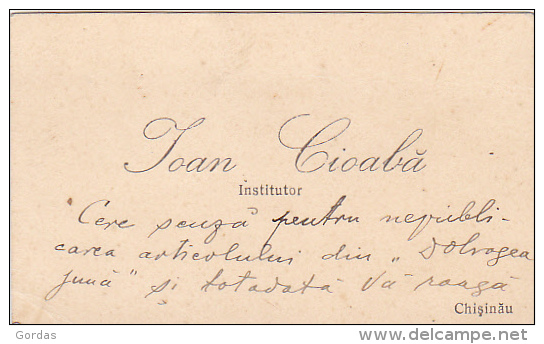 Ioan Cioabă
Institutor
Cere scuză pentru nepubli-
carea articolului din „Dobrogea
jună" și totodată Vă roagă
Chișinău
Gordas
delcampe.net